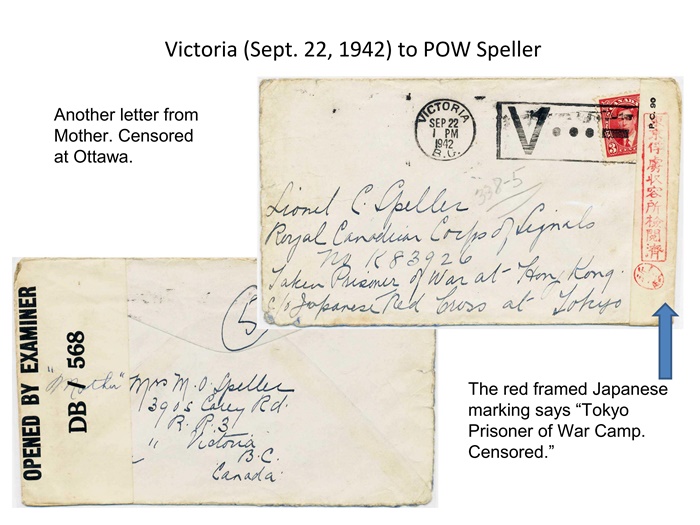 Victoria (Sept. 22, 1942) to POW Speller
Another letter from
Mother. Censored
at Ottawa.
VICTORIA
SEP 22
1 PM
1942
B.C.
V...
CANADA
3
P.C. 90
東京俘虜収容所検閲済
338-5
Lionel C. Speller
Royal Canadian Corps of Signals
No K83926
Taken Prisoner of War at Hong Kong.
c/o Japanese Red Cross at Tokyo
OPENED BY EXAMINER
DB / 568
5
"Mother" Mrs M. O. Speller
3905 Carey Rd.
R.R.3
" Victoria
B.C.
Canada.
The red framed Japanese
marking says “Tokyo
Prisoner of War Camp.
Censored.”